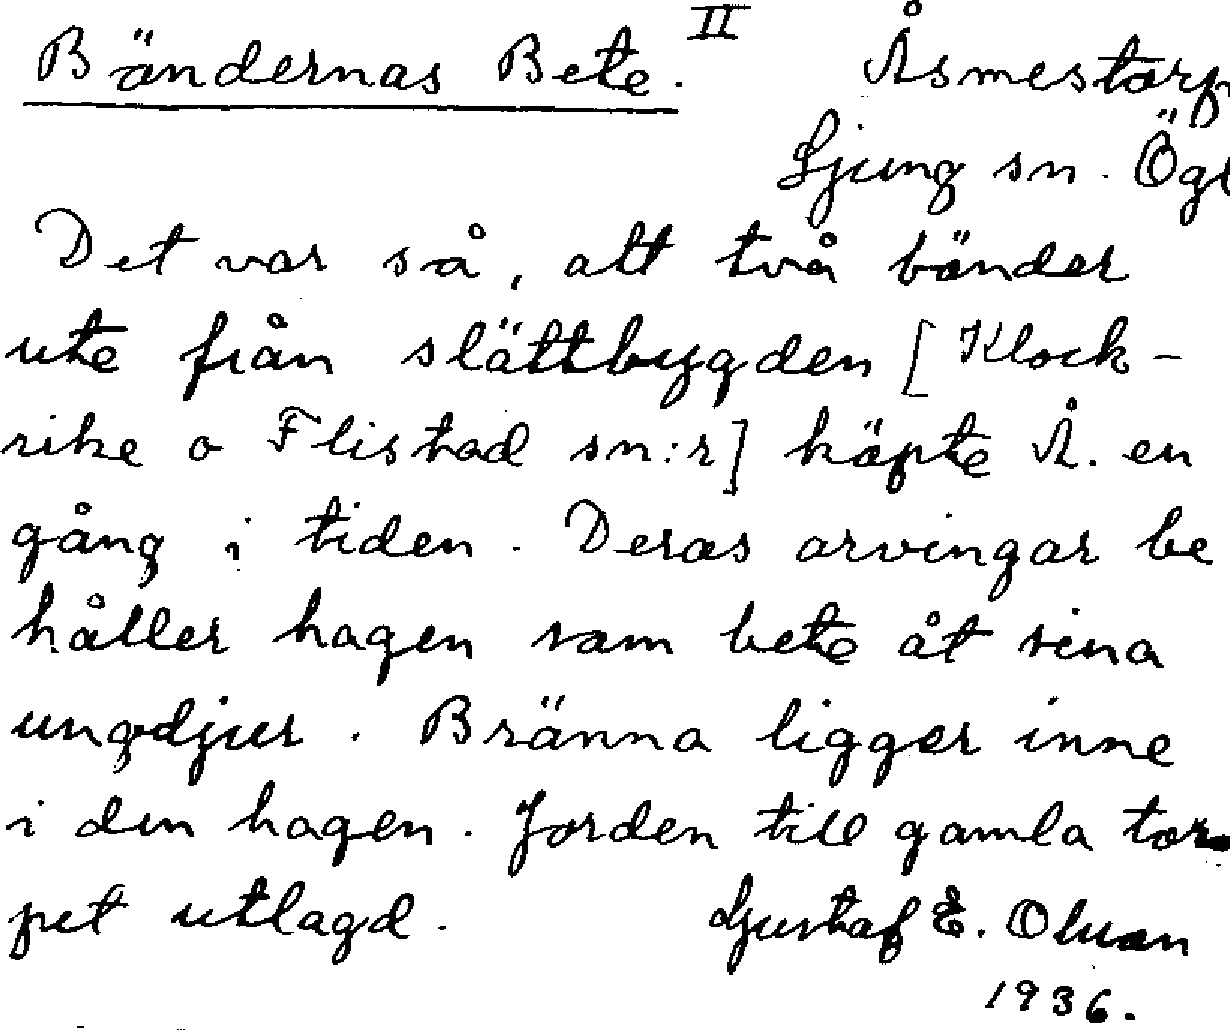 Bändernas Bete. II Åsmestorp
Ljung sn. Ögl
Det var så, att två bönder
ute från slättbygden [Klock-
rike o Flistad sn:r] köpte Å. en
gång i tiden. Deras arvingar be
håller hagen som bete åt sina
ungdjur. Bränna ligger inne
i den hagen. Jorden till gamla tor-
pet utlagd. Gustaf E. Olsson
1936.